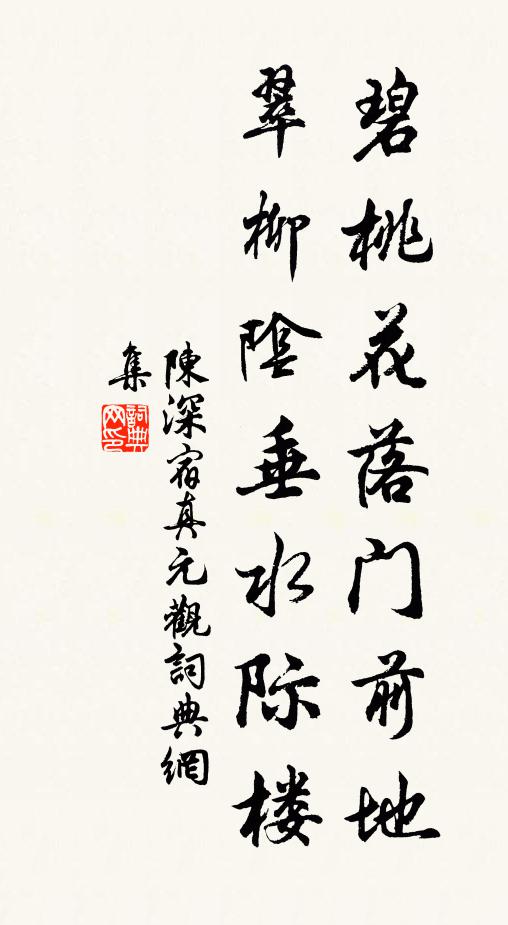 碧桃花落门前地
翠柳陰垂水际楼
陳深宿真元觀詞典網
集
詞典
网印